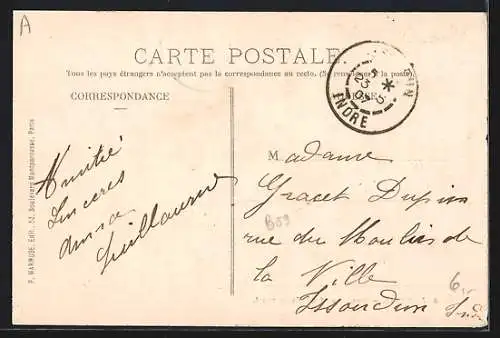 A
CARTE POSTALE.
Tous les pays étrangers n'acceptent pas la correspondance au recto. (Se renseigner à la poste)
CORRESPONDANCE
INDRE
Amitié
sincères
Guillaume
Madame
Gracet Dupin
B59
rue du Moulin de
la Ville
Issoudun Indre
P. MARMUSE, Edit., 52, Boulevard Montparnasse, Paris